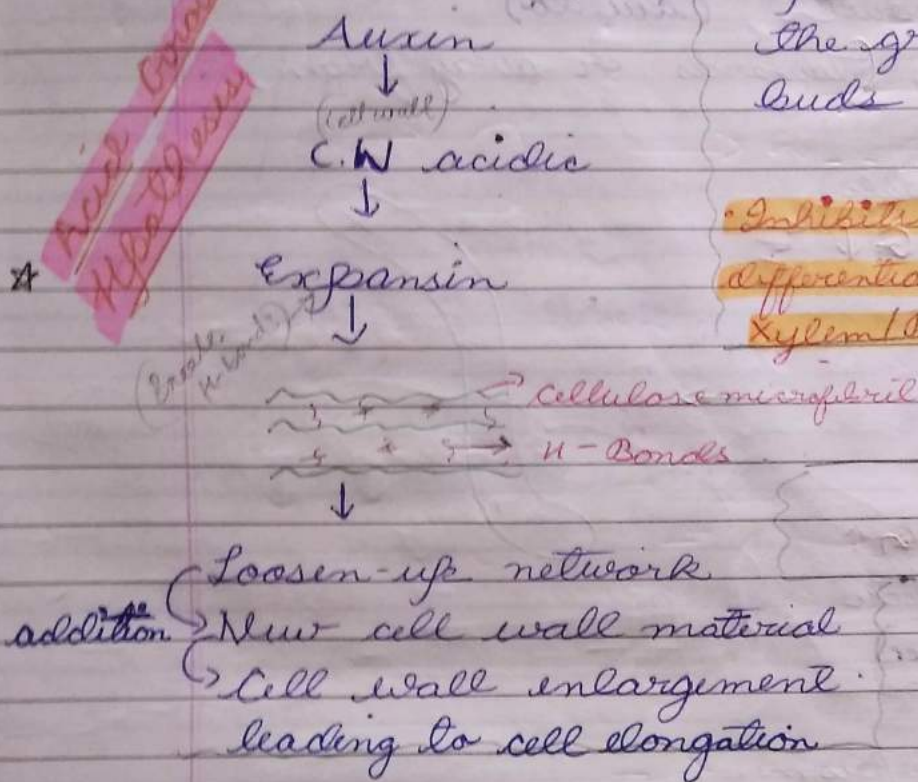 Acid
Hpothesis
Auxin
(cell wall)
C.W acidic
Expansin
(Breaks
H-bonds)
Cellulose microfibril
H-Bonds
Loosen-up network
addition New cell wall material
Cell wall enlargement
leading to cell elongation
the gr
buds
Inhibits
differentia
Xylem/